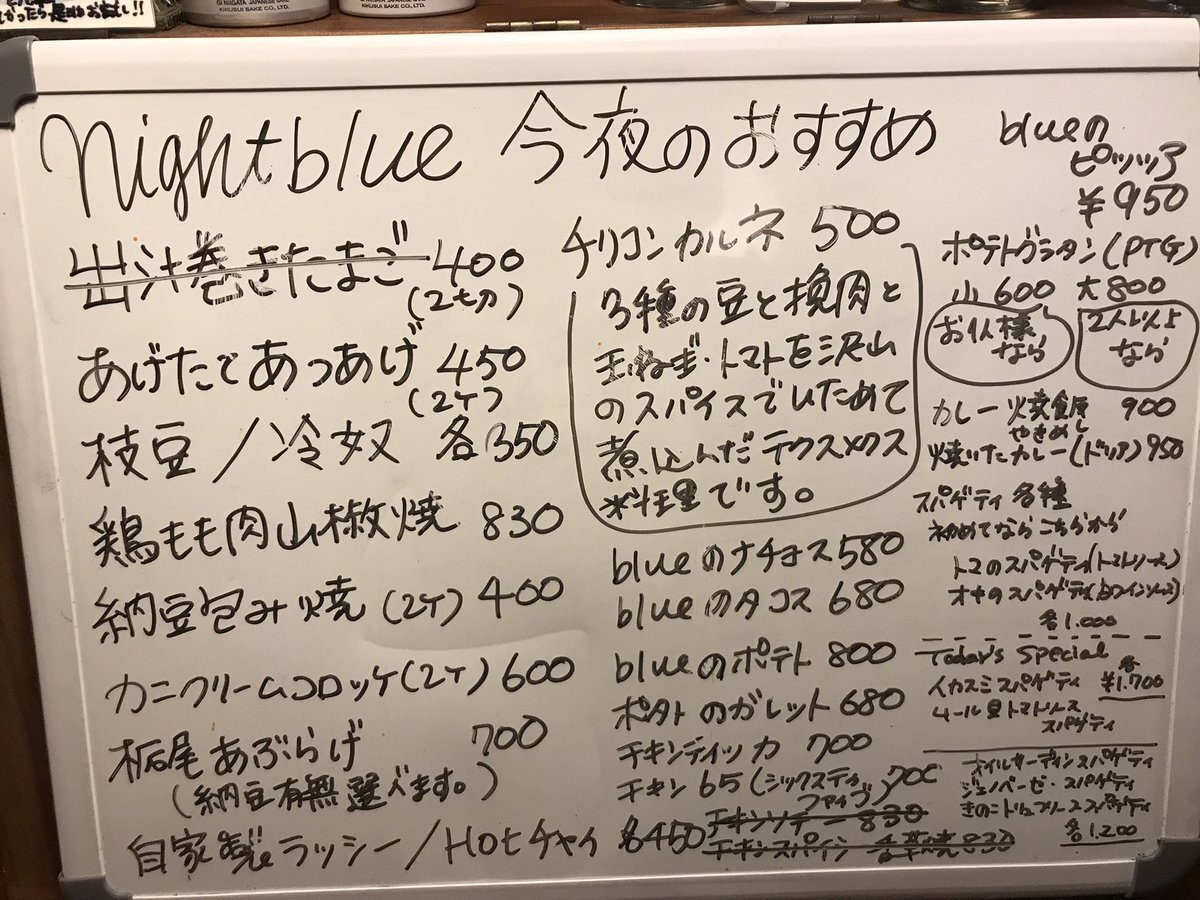 かったら是非お試し!!
GI NIIGATA JAPANESE SAKE
KIKUSUI SAKE CO., LTD.
KIKUSUI SAKE CO., LTD.
nightblue 今夜のおすすめ
出汁巻きたまご 400
(2切)
あげたてあつあげ 450
(2ケ)
枝豆/冷奴 各350
鶏もも肉山椒焼 830
納豆包み焼(2ケ) 400
カニクリームコロッケ(2ケ) 600
栃尾あぶらげ 700
(納豆有無選べます。)
自家製ラッシー/Hotチャイ 各450
チリコンカルネ 500
3種の豆と挽肉と
玉ねぎ・トマトを沢山
のスパイスでいためて
煮込んだテクスメクス
料理です。
blueのナチョス 580
blueのタコス 680
blueのポテト 800
ポタトのガレット 680
チキンティッカ 700
チキン65(シックスティ
ファイブ) 700
チキンソテー 830
チキンスパイシー香草焼 830
blueの
ピッツァ
¥950
ポテトグラタン(PTG)
小 600 大 800
お1人様
なら
2人以上
なら
カレー焼飯 900
やきめし
焼いたカレー(ドリア) 950
スパゲティ各種
初めてならこちらから
トマのスパゲティ(トマトソース)
オキのスパゲティ(白ワインソース)
各1.000
Today's Special
各
イカスミスパゲティ ¥1.700
ムール貝トマトソース
スパゲティ
オイルサーディンスパゲティ
ジェノベーゼ・スパゲティ
きのこトリュフソーススパゲティ
各1.200